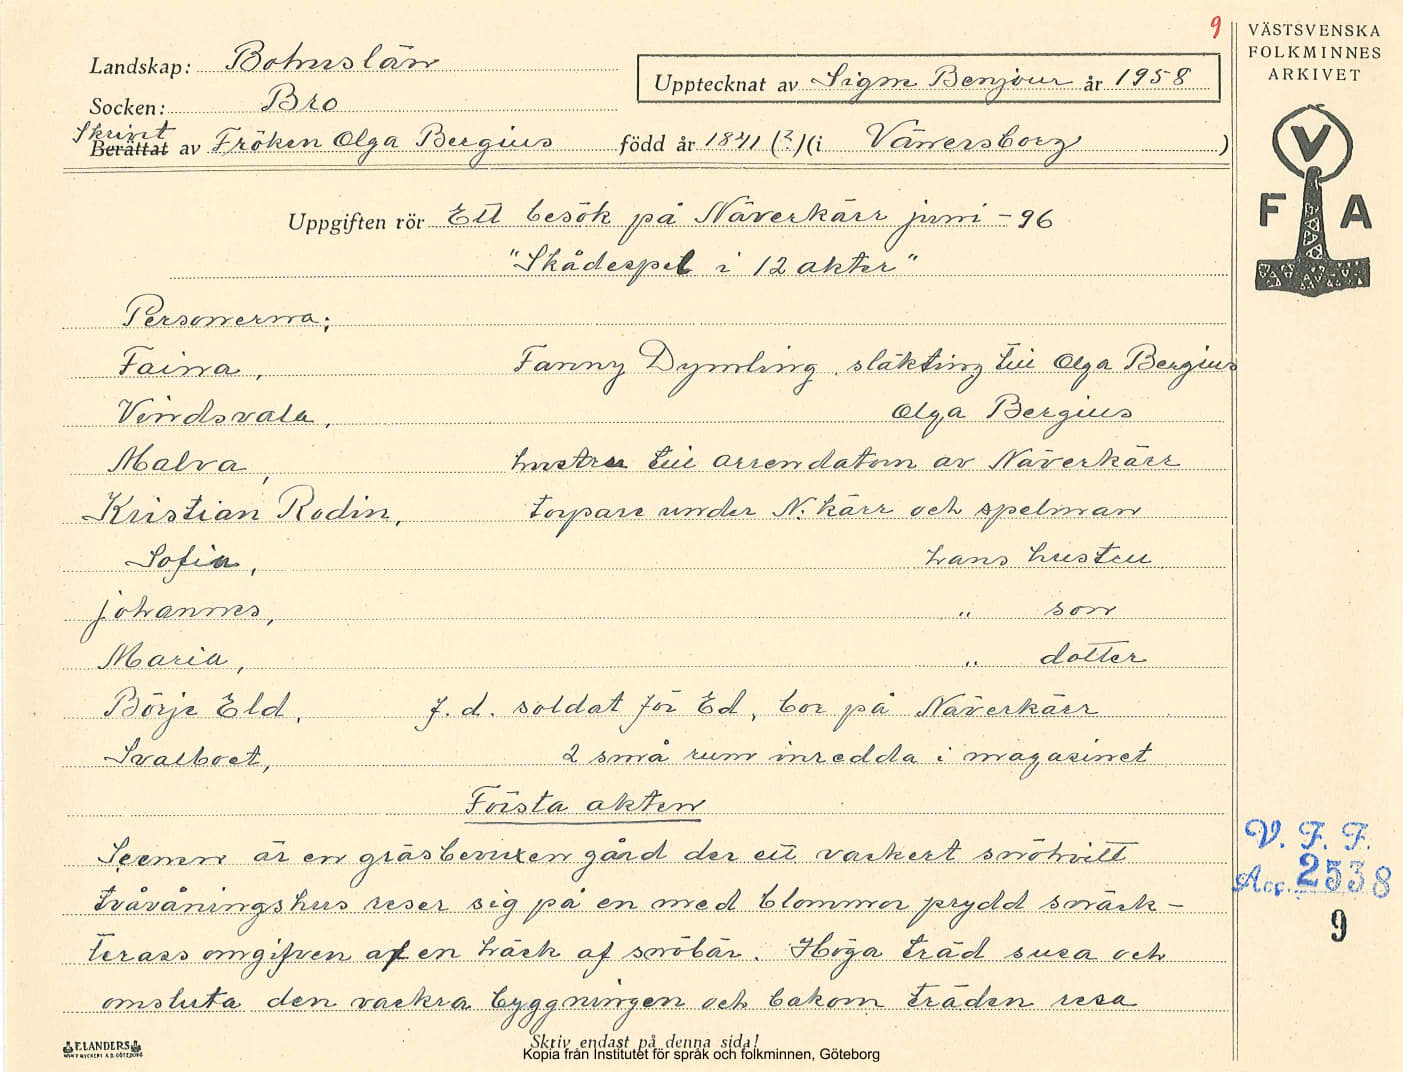 9
VÄSTSVENSKA
FOLKMINNES
ARKIVET
Landskap: Bohuslän
Upptecknat av Signe Benjour år 1958
Socken: Bro
Skrivet
Berättat av Fröken Olga Bergius född år 1841 (?) (i Vänersborg )
V
F A
Uppgiften rör Ett besök på Näverkärr juni - 96
"Skådespel i 12 akter"
Personerna:
Faina, Fanny Dymling, släkting till Olga Bergius
Vindsvala, Olga Bergius
Malva, hustru till arrendatorn av Näverkärr
Kristian Rodin, torpare under N. kärr och spelman
Sofia, hans hustru
Johannes, " son
Maria, " dotter
Börje Eld, f. d. soldat för Ed, bor på Näverkärr
Svalboet, 2 små rum inredda i magasinet
Första akten
Scenen är en gräsbevuxen gård der ett vackert snöhvitt
tvåvåningshus reser sig på en med blommor prydd snäck-
terass omgifven af en häck af snöbär. Höga träd susa och
omsluta den vackra byggningen och bakom träden resa
V. F. F.
Acc. 2538
9
F. ELANDERS
Skriv endast på denna sida!
Kopia från Institutet för språk och folkminnen, Göteborg